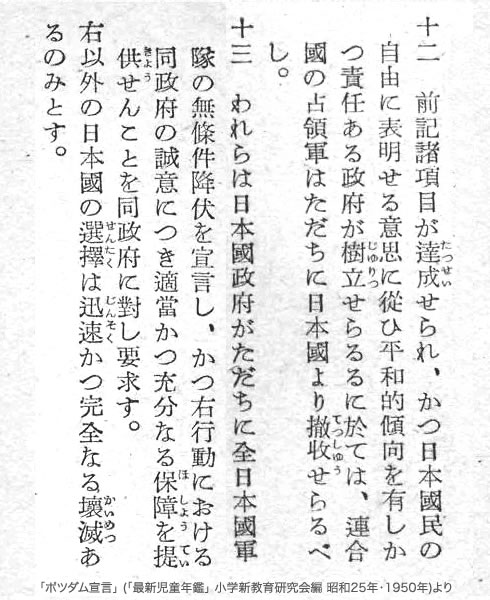 十二　前記諸項目が達成せられ、かつ日本國民の
自由に表明せる意思に從ひ平和的傾向を有しか
つ責任ある政府が樹立せらるるに於ては、連合
國の占領軍はただちに日本國より撤收せらるべ
し。
十三　われらは日本國政府がただちに全日本國軍
隊の無條件降伏を宣言し、かつ右行動における
同政府の誠意につき適當かつ充分なる保障を提
供せんことを同政府に對し要求す。
右以外の日本國の選擇は迅速かつ完全なる壞滅あ
るのみとす。
「ポツダム宣言」(「最新児童年鑑」小学新教育研究会編 昭和25年・1950年)より